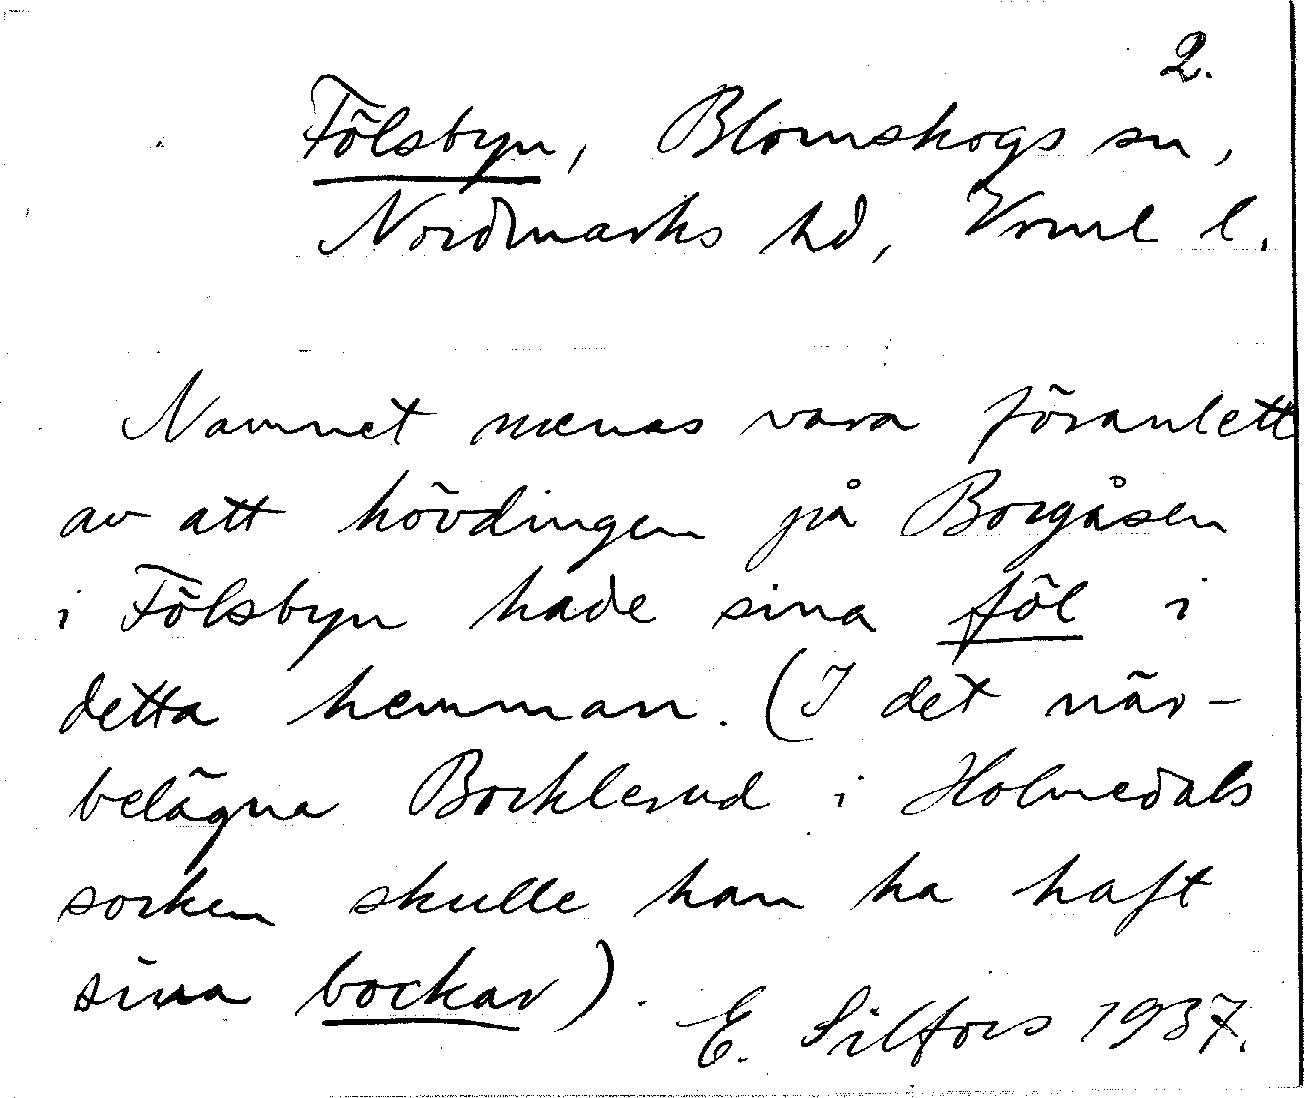 2.
Fölsbyn, Blomskogs sn,
Nordmarks hd, Vrml l.
Namnet menas vara föranlett
av att hövdingen på Borgåsen
i Fölsbyn hade sina föl i
detta hemman. (I det när-
belägna Bocklerud i Holmedals
socken skulle han ha haft
sina bockar).
E. Silfors 1937.